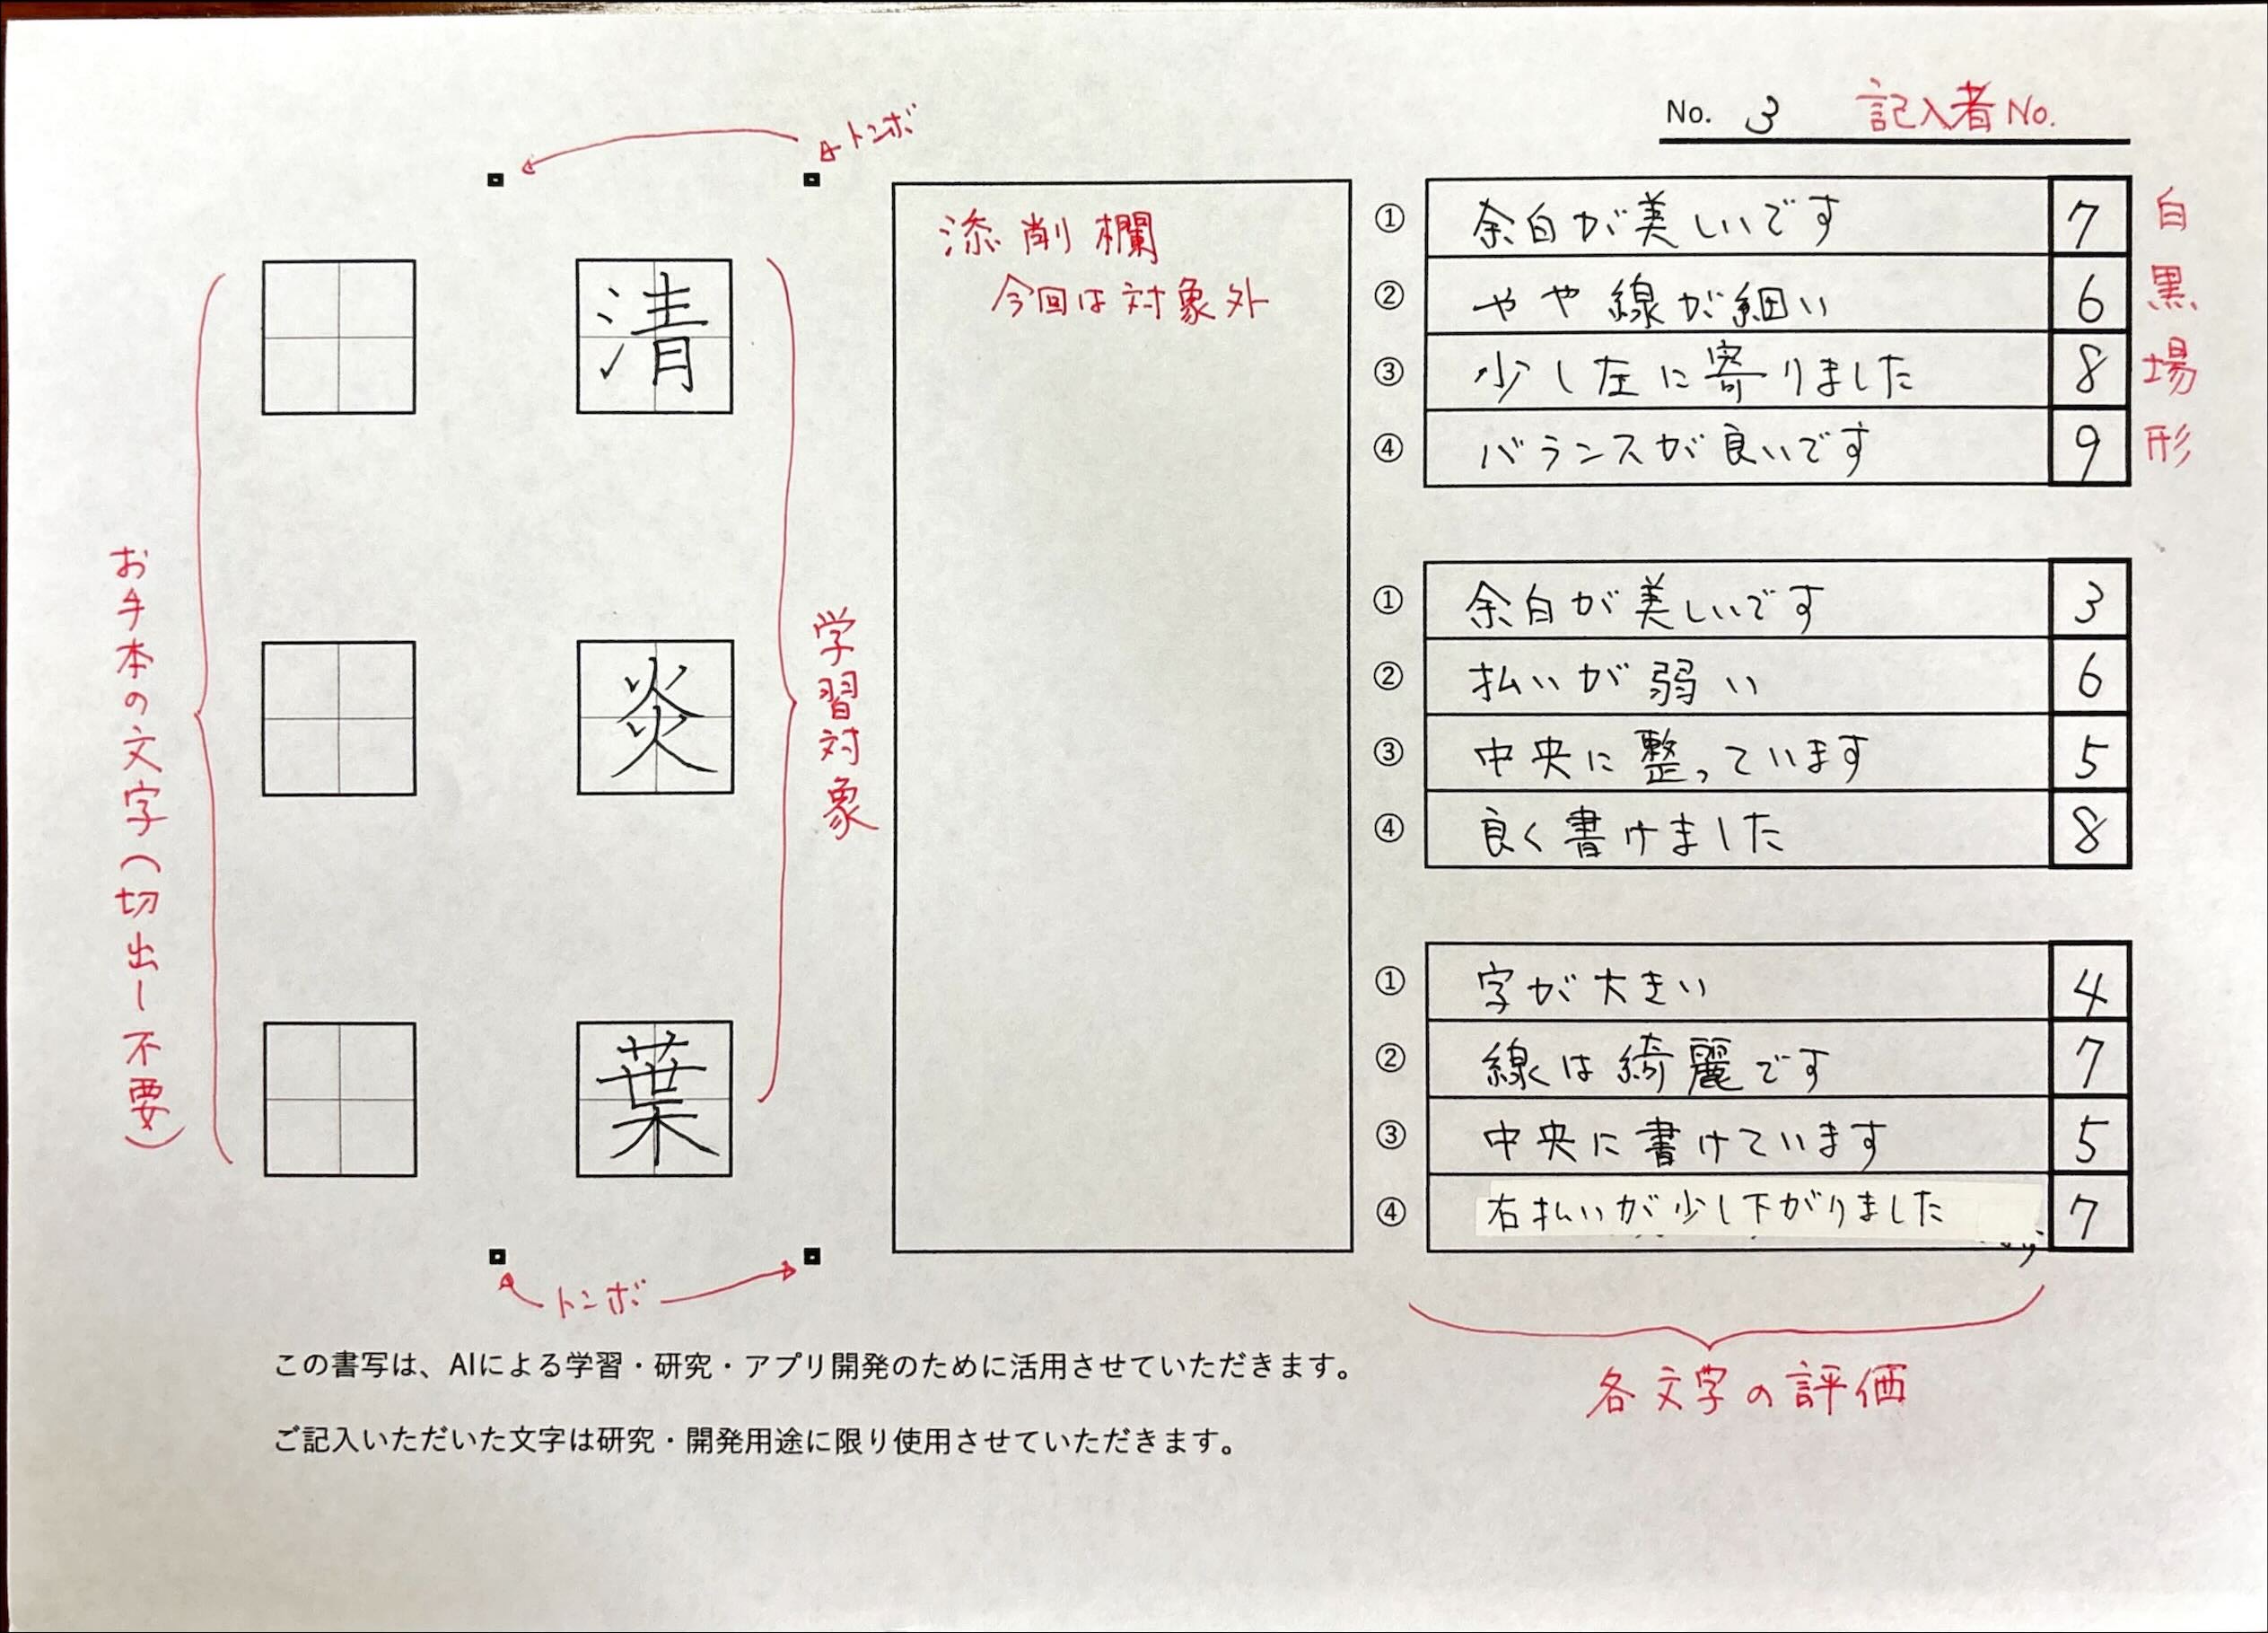 No. 3 記入者No.
トンボ
清
炎
葉
お手本の文字(切出し不要)
学習対象
添削欄
今回は対象外
① 余白が美しいです 7 白
② やや線が細い 6 黒
③ 少し左に寄りました 8 場
④ バランスが良いです 9 形
① 余白が美しいです 3
② 払いが弱い 6
③ 中央に整っています 5
④ 良く書けました 8
① 字が大きい 4
② 線は綺麗です 7
③ 中央に書けています 5
④ 右払いが少し下がりました 7
トンボ
各文字の評価
この書写は、AIによる学習・研究・アプリ開発のために活用させていただきます。
ご記入いただいた文字は研究・開発用途に限り使用させていただきます。